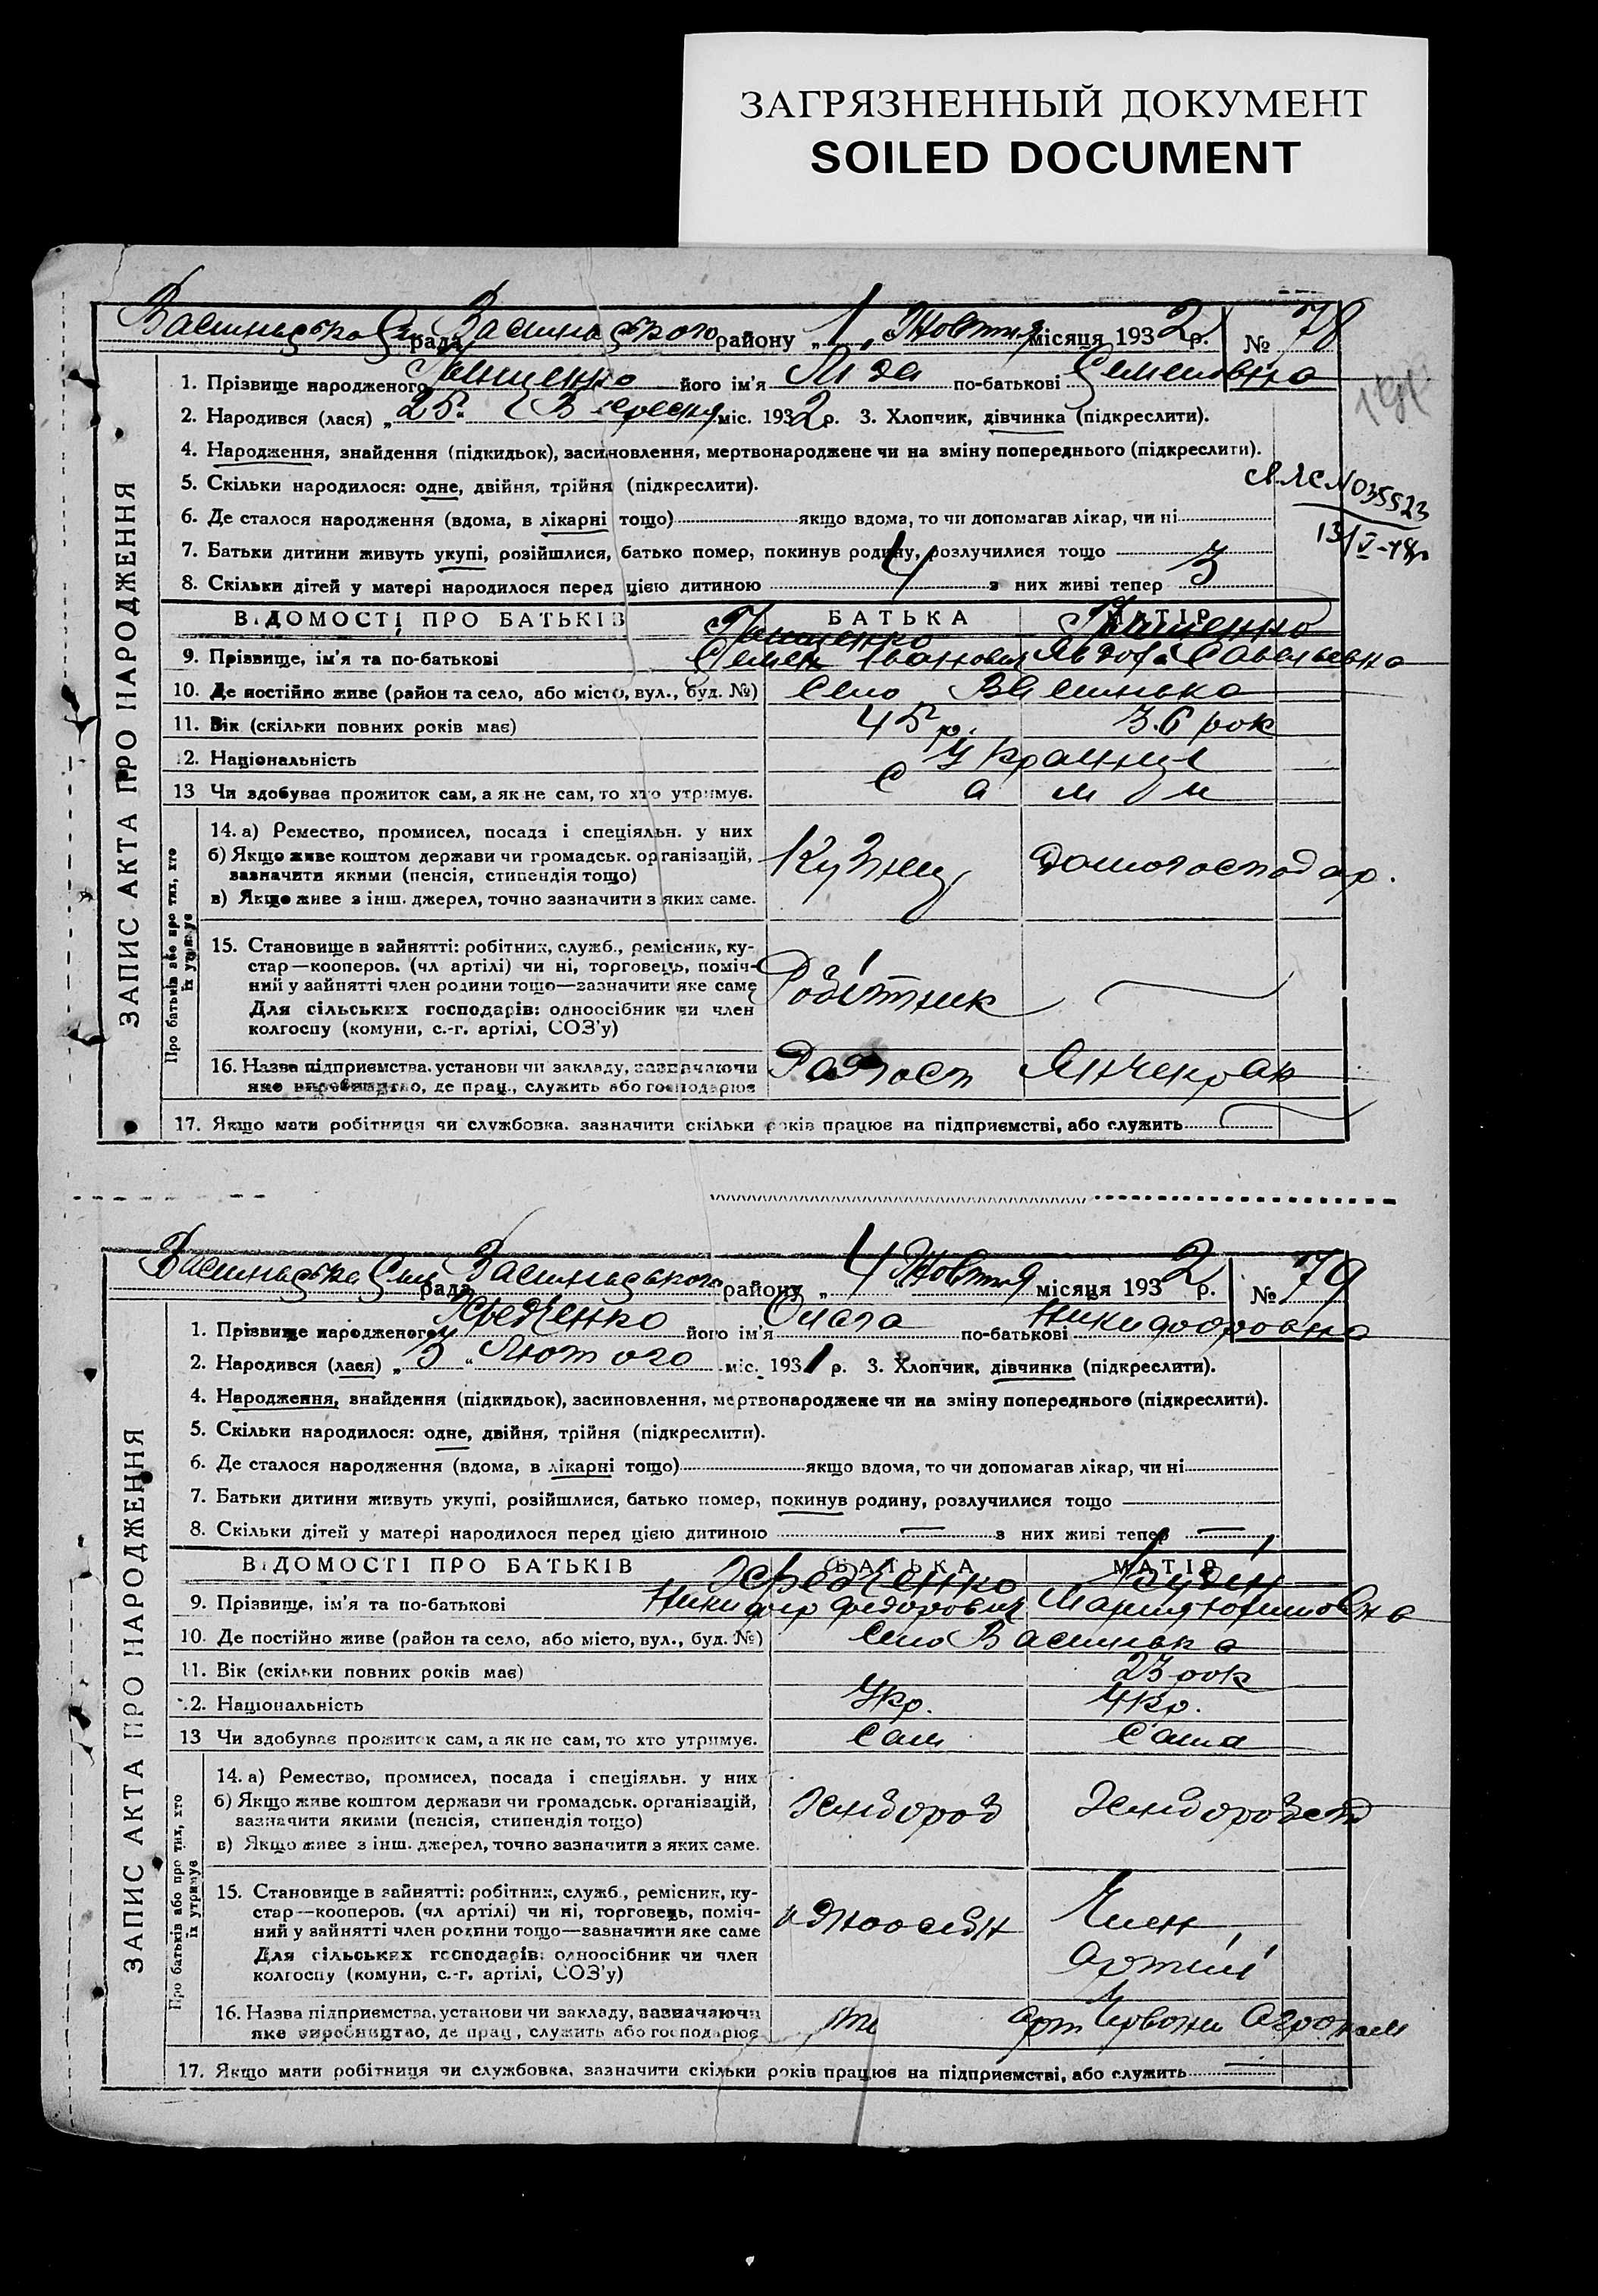 ЗАГРЯЗНЕННЫЙ ДОКУМЕНТ
SOILED DOCUMENT
рада району „1„ Жовтня місяця 1932 р. № 78
1. Прізвище народженого його ім'я Ліда по-батькові Семеновна
2. Народився (лася) „25„ Вересня міс. 1932 р. 3. Хлопчик, дівчинка (підкреслити).
4. Народження, знайдення (підкидьок), засиновлення, мертвонароджене чи на зміну попереднього (підкреслити).
5. Скільки народилося: одне, двійня, трійня (підкреслити).
6. Де сталося народження (вдома, в лікарні тощо) якщо вдома, то чи допомагав лікар, чи ні
№ 035523
13/V-48р
7. Батьки дитини живуть укупі, розійшлися, батько помер, покинув родину, розлучилися тощо
8. Скільки дітей у матері народилося перед цією дитиною 4 з них живі тепер 3
ВІДОМОСТІ ПРО БАТЬКІВ БАТЬКА МАТІР
9. Прізвище, ім'я та по-батькові Семен Іванович Явдоха Савельевна
10. Де постійно живе (район та село, або місто, вул., буд. №) Село
11. Вік (скільки повних років має) 45 р. 36 рок
12. Національність Українці
13 Чи здобуває прожиток сам, а як не сам, то хто утримує. Сам
ЗАПИС АКТА ПРО НАРОДЖЕННЯ
Про батьків або про тих, хто їх утримує
14. а) Ремество, промисел, посада і спеціяльн. у них
б) Якщо живе коштом держави чи громадськ. організацій,
зазначити якими (пенсія, стипендія тощо)
в) Якщо живе з інш. джерел, точно зазначити з яких саме.
Кузнец домогосподар.
15. Становище в зайнятті: робітник, служб., ремісник, ку-
стар—кооперов. (чл артілі) чи ні, торговець, поміч-
ний у зайнятті член родини тощо—зазначити яке саме
Для сільських господарів: одноосібник чи член
колгоспу (комуни, с.-г. артілі, СОЗ'у)
Робітник
16. Назва підприємства, установи чи закладу, зазначаючи
яке виробництво, де прац., служить або господарює
Радгосп
17. Якщо мати робітниця чи службовка, зазначити скільки років працює на підприємстві, або служить
рада району „4 Жовтня місяця 1932 р. № 79
1. Прізвище народженого його ім'я Ольга по-батькові Никифоровна
2. Народився (лася) „3„ Лютого міс. 1931 р. 3. Хлопчик, дівчинка (підкреслити).
4. Народження, знайдення (підкидьок), засиновлення, мертвонароджене чи на зміну попереднього (підкреслити).
5. Скільки народилося: одне, двійня, трійня (підкреслити).
6. Де сталося народження (вдома, в лікарні тощо) якщо вдома, то чи допомагав лікар, чи ні
7. Батьки дитини живуть укупі, розійшлися, батько помер, покинув родину, розлучилися тощо
8. Скільки дітей у матері народилося перед цією дитиною — з них живі тепер —
ВІДОМОСТІ ПРО БАТЬКІВ БАТЬКА МАТІР
9. Прізвище, ім'я та по-батькові Никифор Федорович Мария
10. Де постійно живе (район та село, або місто, вул., буд. №) Село
11. Вік (скільки повних років має) 23 рок
12. Національність Укр. Укр.
13 Чи здобуває прожиток сам, а як не сам, то хто утримує. Сам Сама
ЗАПИС АКТА ПРО НАРОДЖЕННЯ
Про батьків або про тих, хто їх утримує
14. а) Ремество, промисел, посада і спеціяльн. у них
б) Якщо живе коштом держави чи громадськ. організацій,
зазначити якими (пенсія, стипендія тощо)
в) Якщо живе з інш. джерел, точно зазначити з яких саме.
15. Становище в зайнятті: робітник, служб., ремісник, ку-
стар—кооперов. (чл артілі) чи ні, торговець, поміч-
ний у зайнятті член родини тощо—зазначити яке саме
Для сільських господарів: одноосібник чи член
колгоспу (комуни, с.-г. артілі, СОЗ'у)
одноосібн Член
артілі
16. Назва підприємства, установи чи закладу, зазначаючи
яке виробництво, де прац., служить або господарює
арт Червоний Агроном
17. Якщо мати робітниця чи службовка, зазначити скільки років працює на підприємстві, або служить